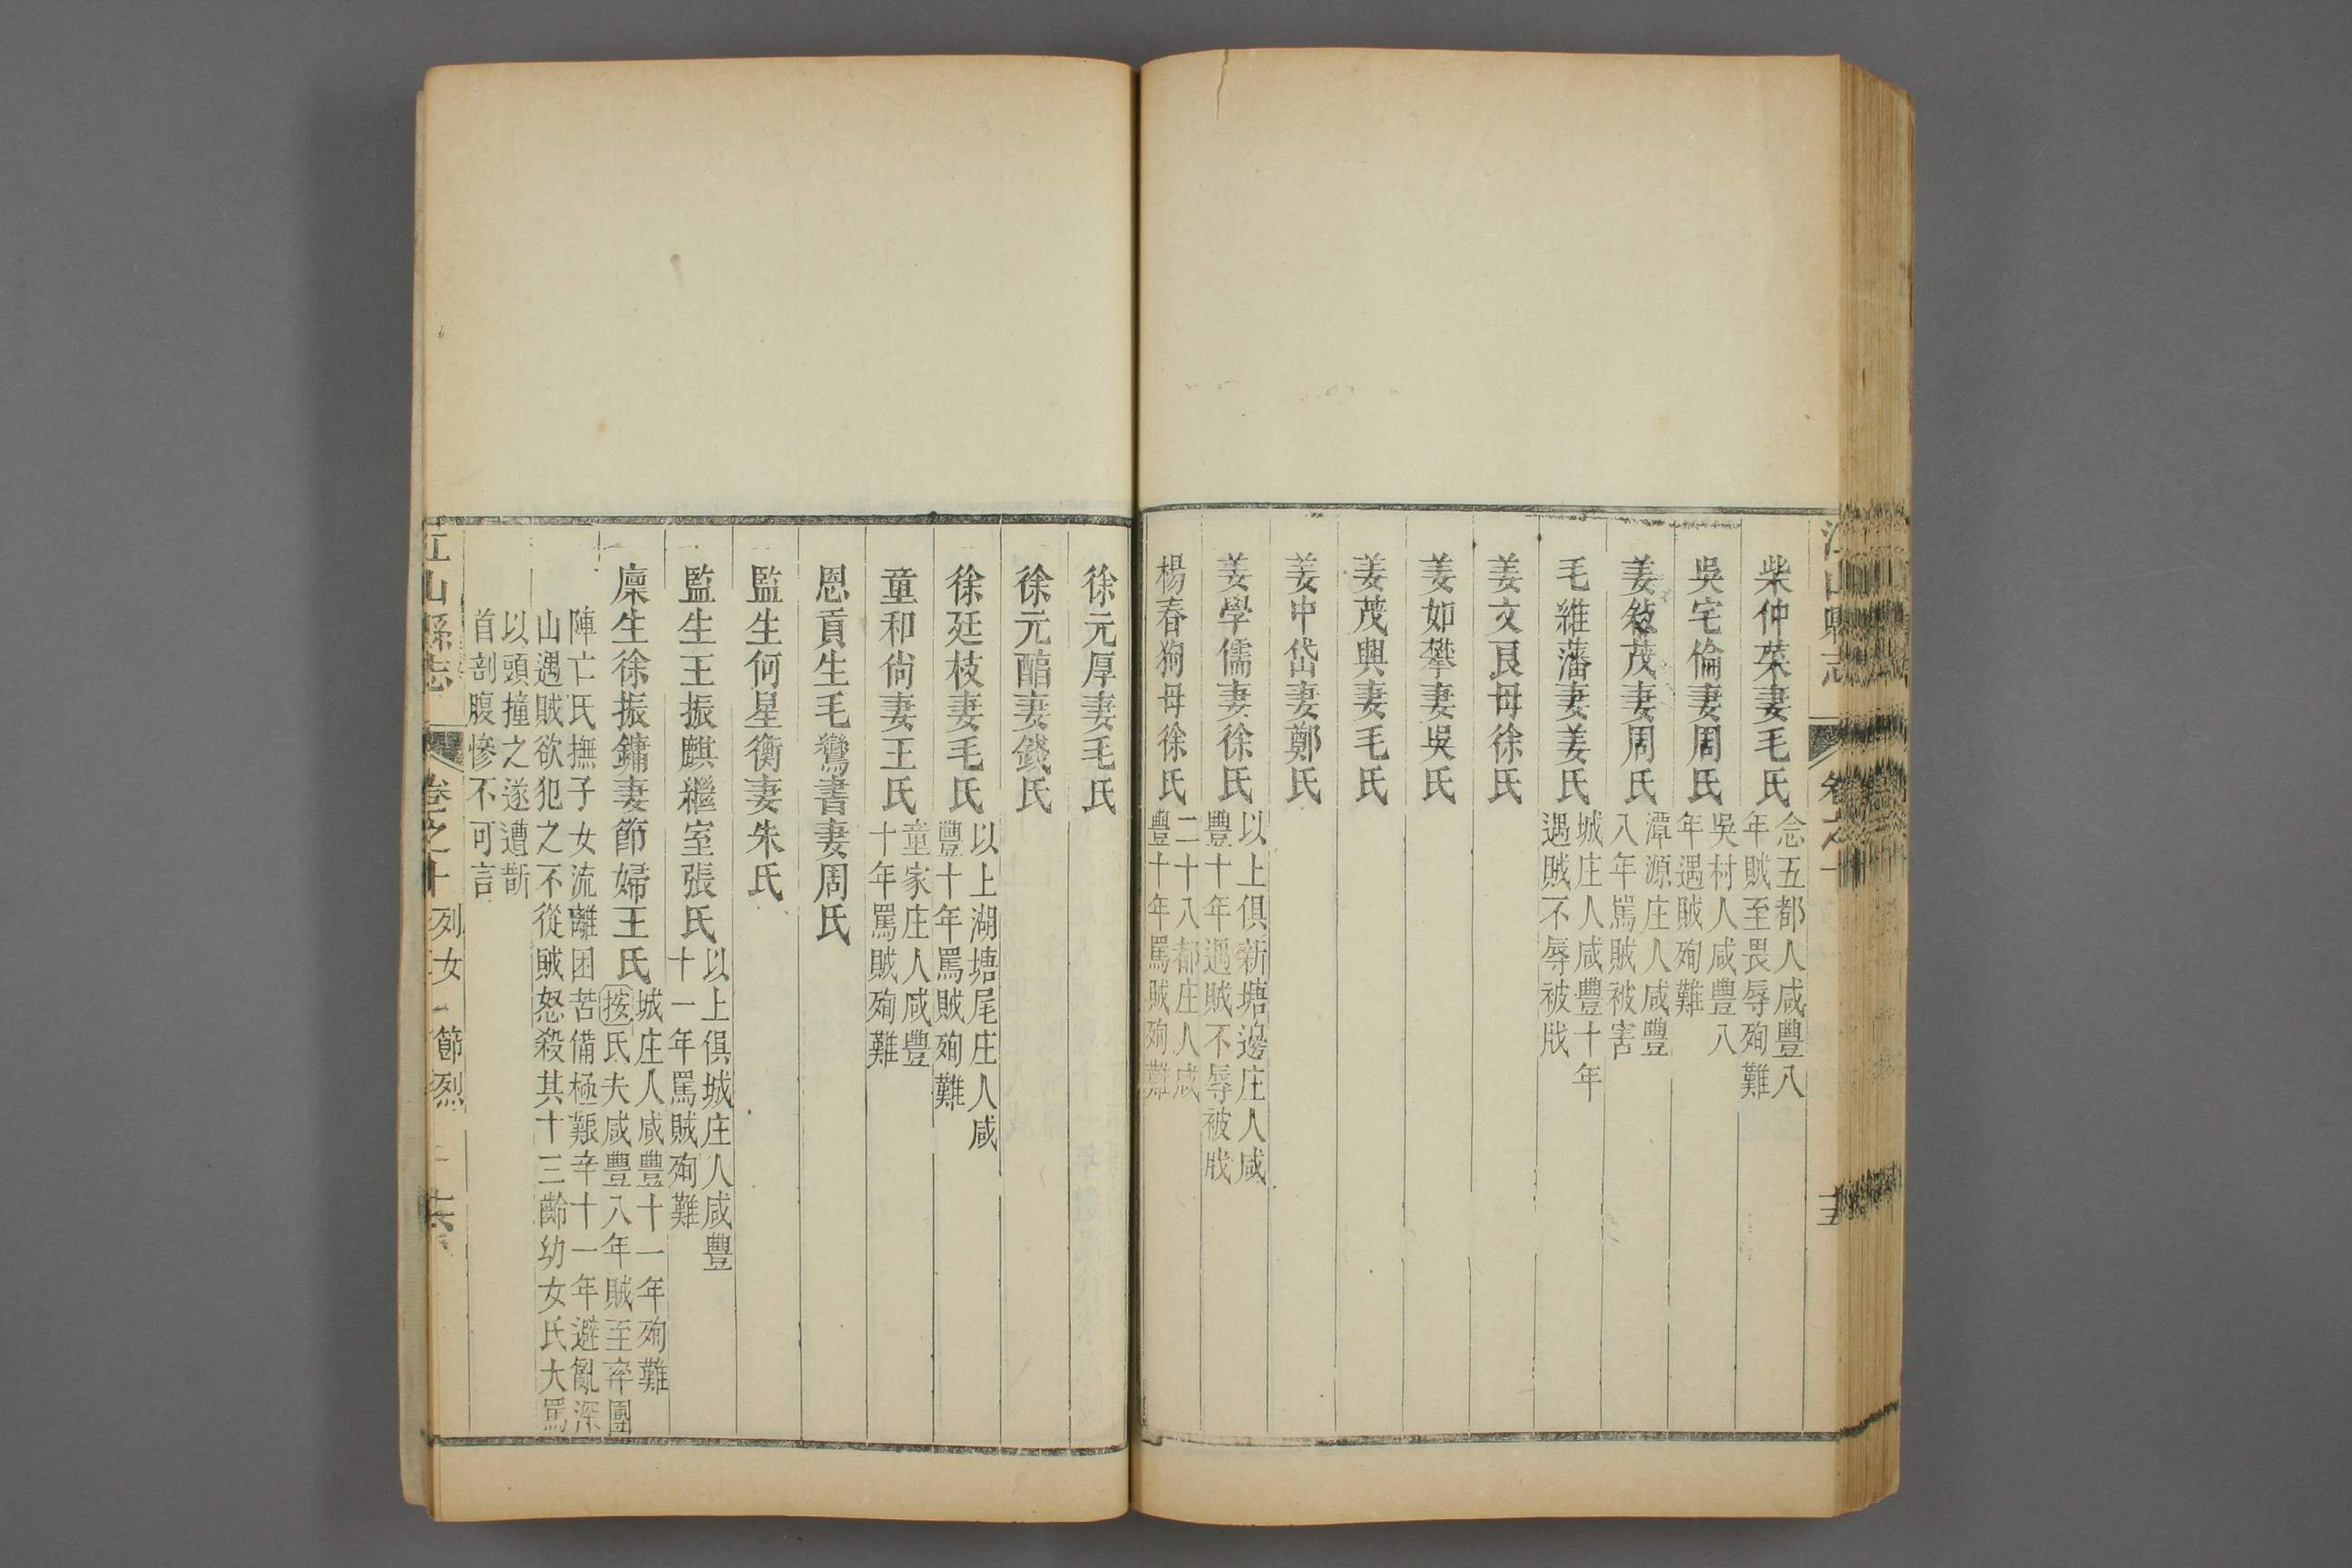 柴仲菜妻毛氏 念五都人咸豐八
年賊至畏辱殉難
吳宅倫妻周氏 吳村人咸豐八
年遇賊殉難
姜 茂妻周氏 潭源庄人咸豐
八年駡賊被害
毛維藩妻姜氏 城庄人咸豐十年
遇賊不辱被戕
姜文艮母徐氏
姜如攀妻吳氏
姜茂興妻毛氏
姜中岱妻鄭氏
姜學儒妻徐氏 以上俱新塘邊庄人咸
豐十年遇賊不辱被戕
楊春狗母徐氏 二十八都庄人咸
豐十年駡賊殉難
徐元厚妻毛氏
徐元醕妻錢氏
徐廷枝妻毛氏 以上湖塘尾庄人咸
豐十年駡賊殉難
童和尙妻王氏 童家庄人咸豐
十年駡賊殉難
恩貢生毛鸞書妻周氏
監生何星衡妻朱氏
監生王振麒繼室張氏 以上俱城庄人咸豐
十一年駡賊殉難
廩生徐振鏞妻節婦王氏 城庄人咸豐十一年殉難
按氏夫咸豐八年賊至率團
陣亡氏撫子女流離困苦備極艱辛十一年避亂深
山遇賊欲犯之不從賊怒殺其十三齡幼女氏大罵
以頭撞之遂遭斮
首剖腹慘不可言
江山縣志 卷之十 列女 節烈